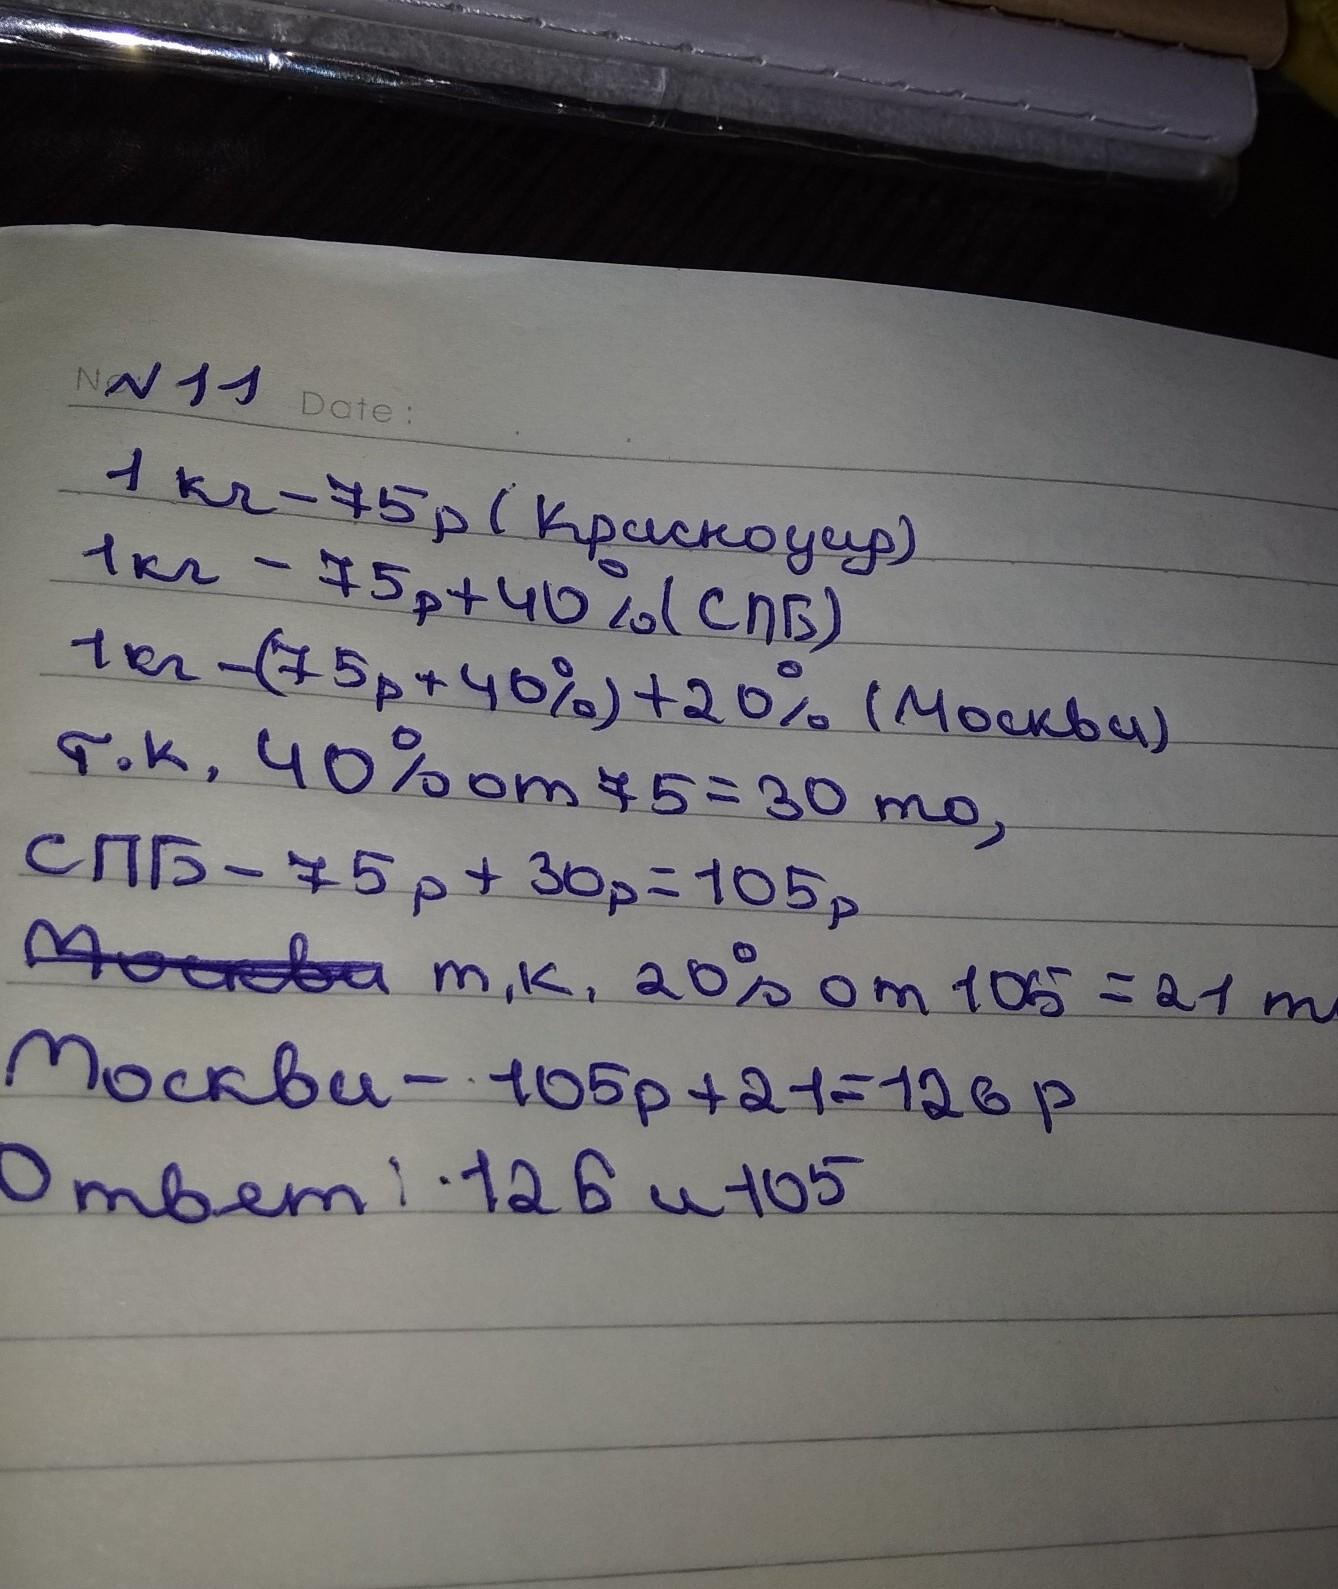 No N 11 Date:
1 кг - 75р (Краснодар)
1кг - 75р+40%(СПБ)
1кг -(75р+40%)+20% (Москва)
т.к. 40% от 75=30 то,
СПБ - 75р + 30р=105р
Москва т,к. 20% от 105 = 21 т
Москва - 105р+21=126р
Ответ: 126 и 105